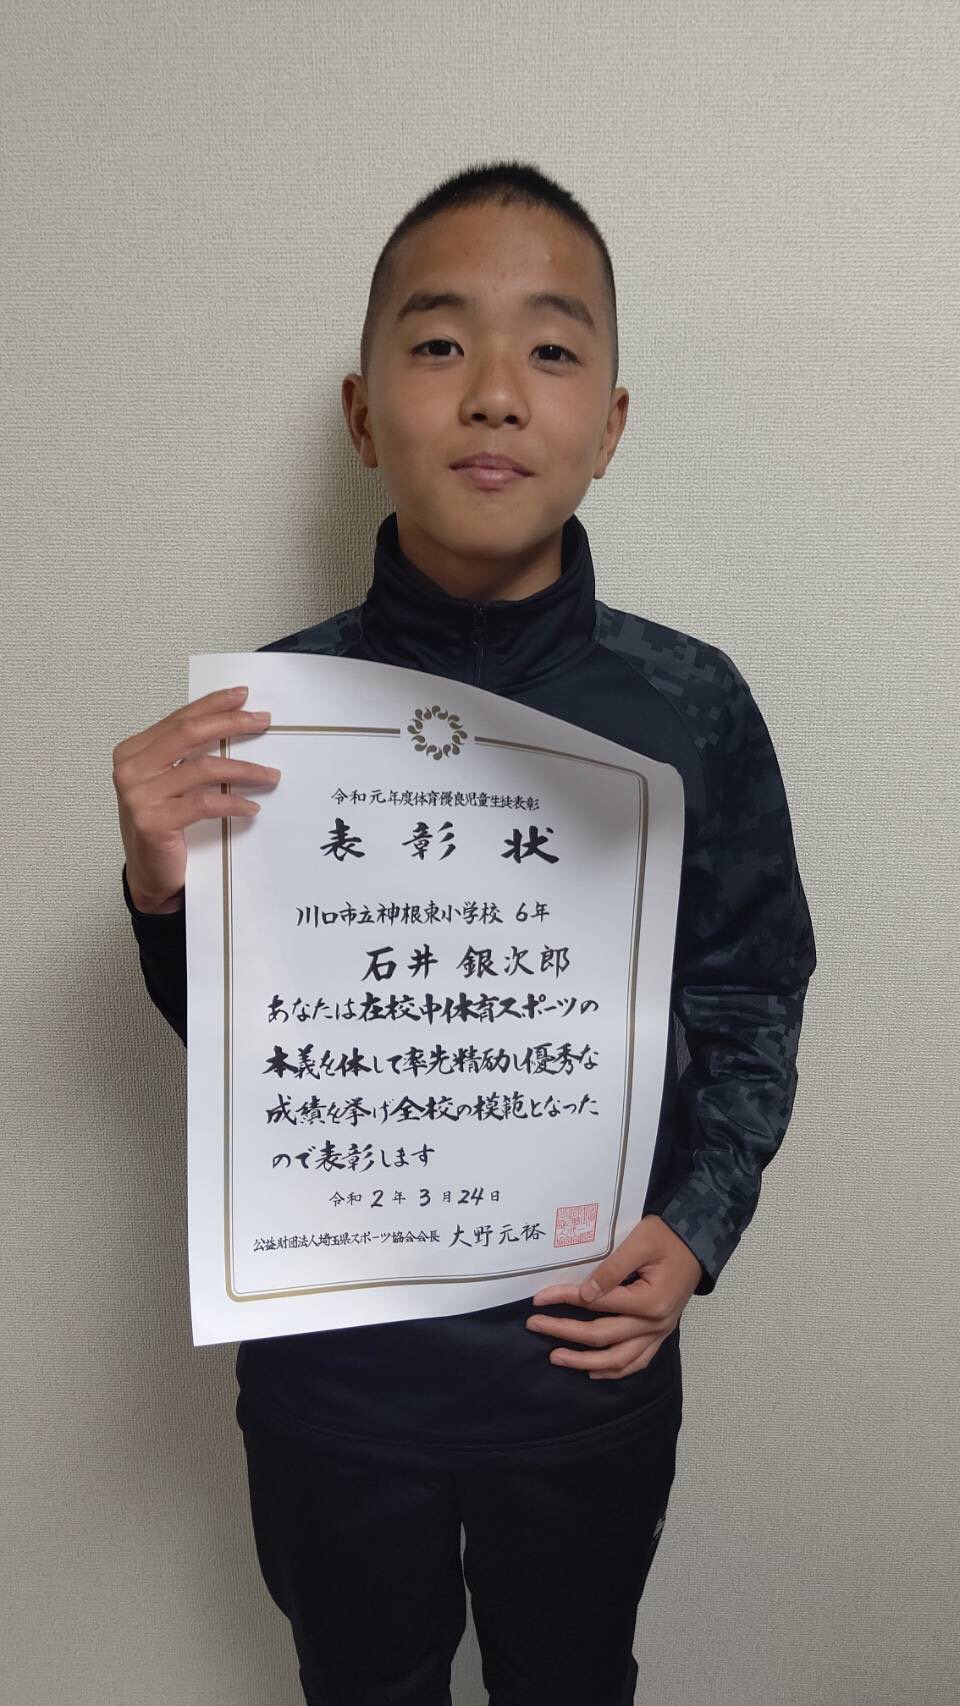 令和元年度体育優良児童生徒表彰
表彰状
川口市立神根東小学校 6年
石井 銀次郎
あなたは在校中体育スポーツの
本義を体して率先精励し優秀な
成績を挙げ全校の模範となった
ので表彰します
令和2年3月24日
公益財団法人埼玉県スポーツ協会会長 大野元裕